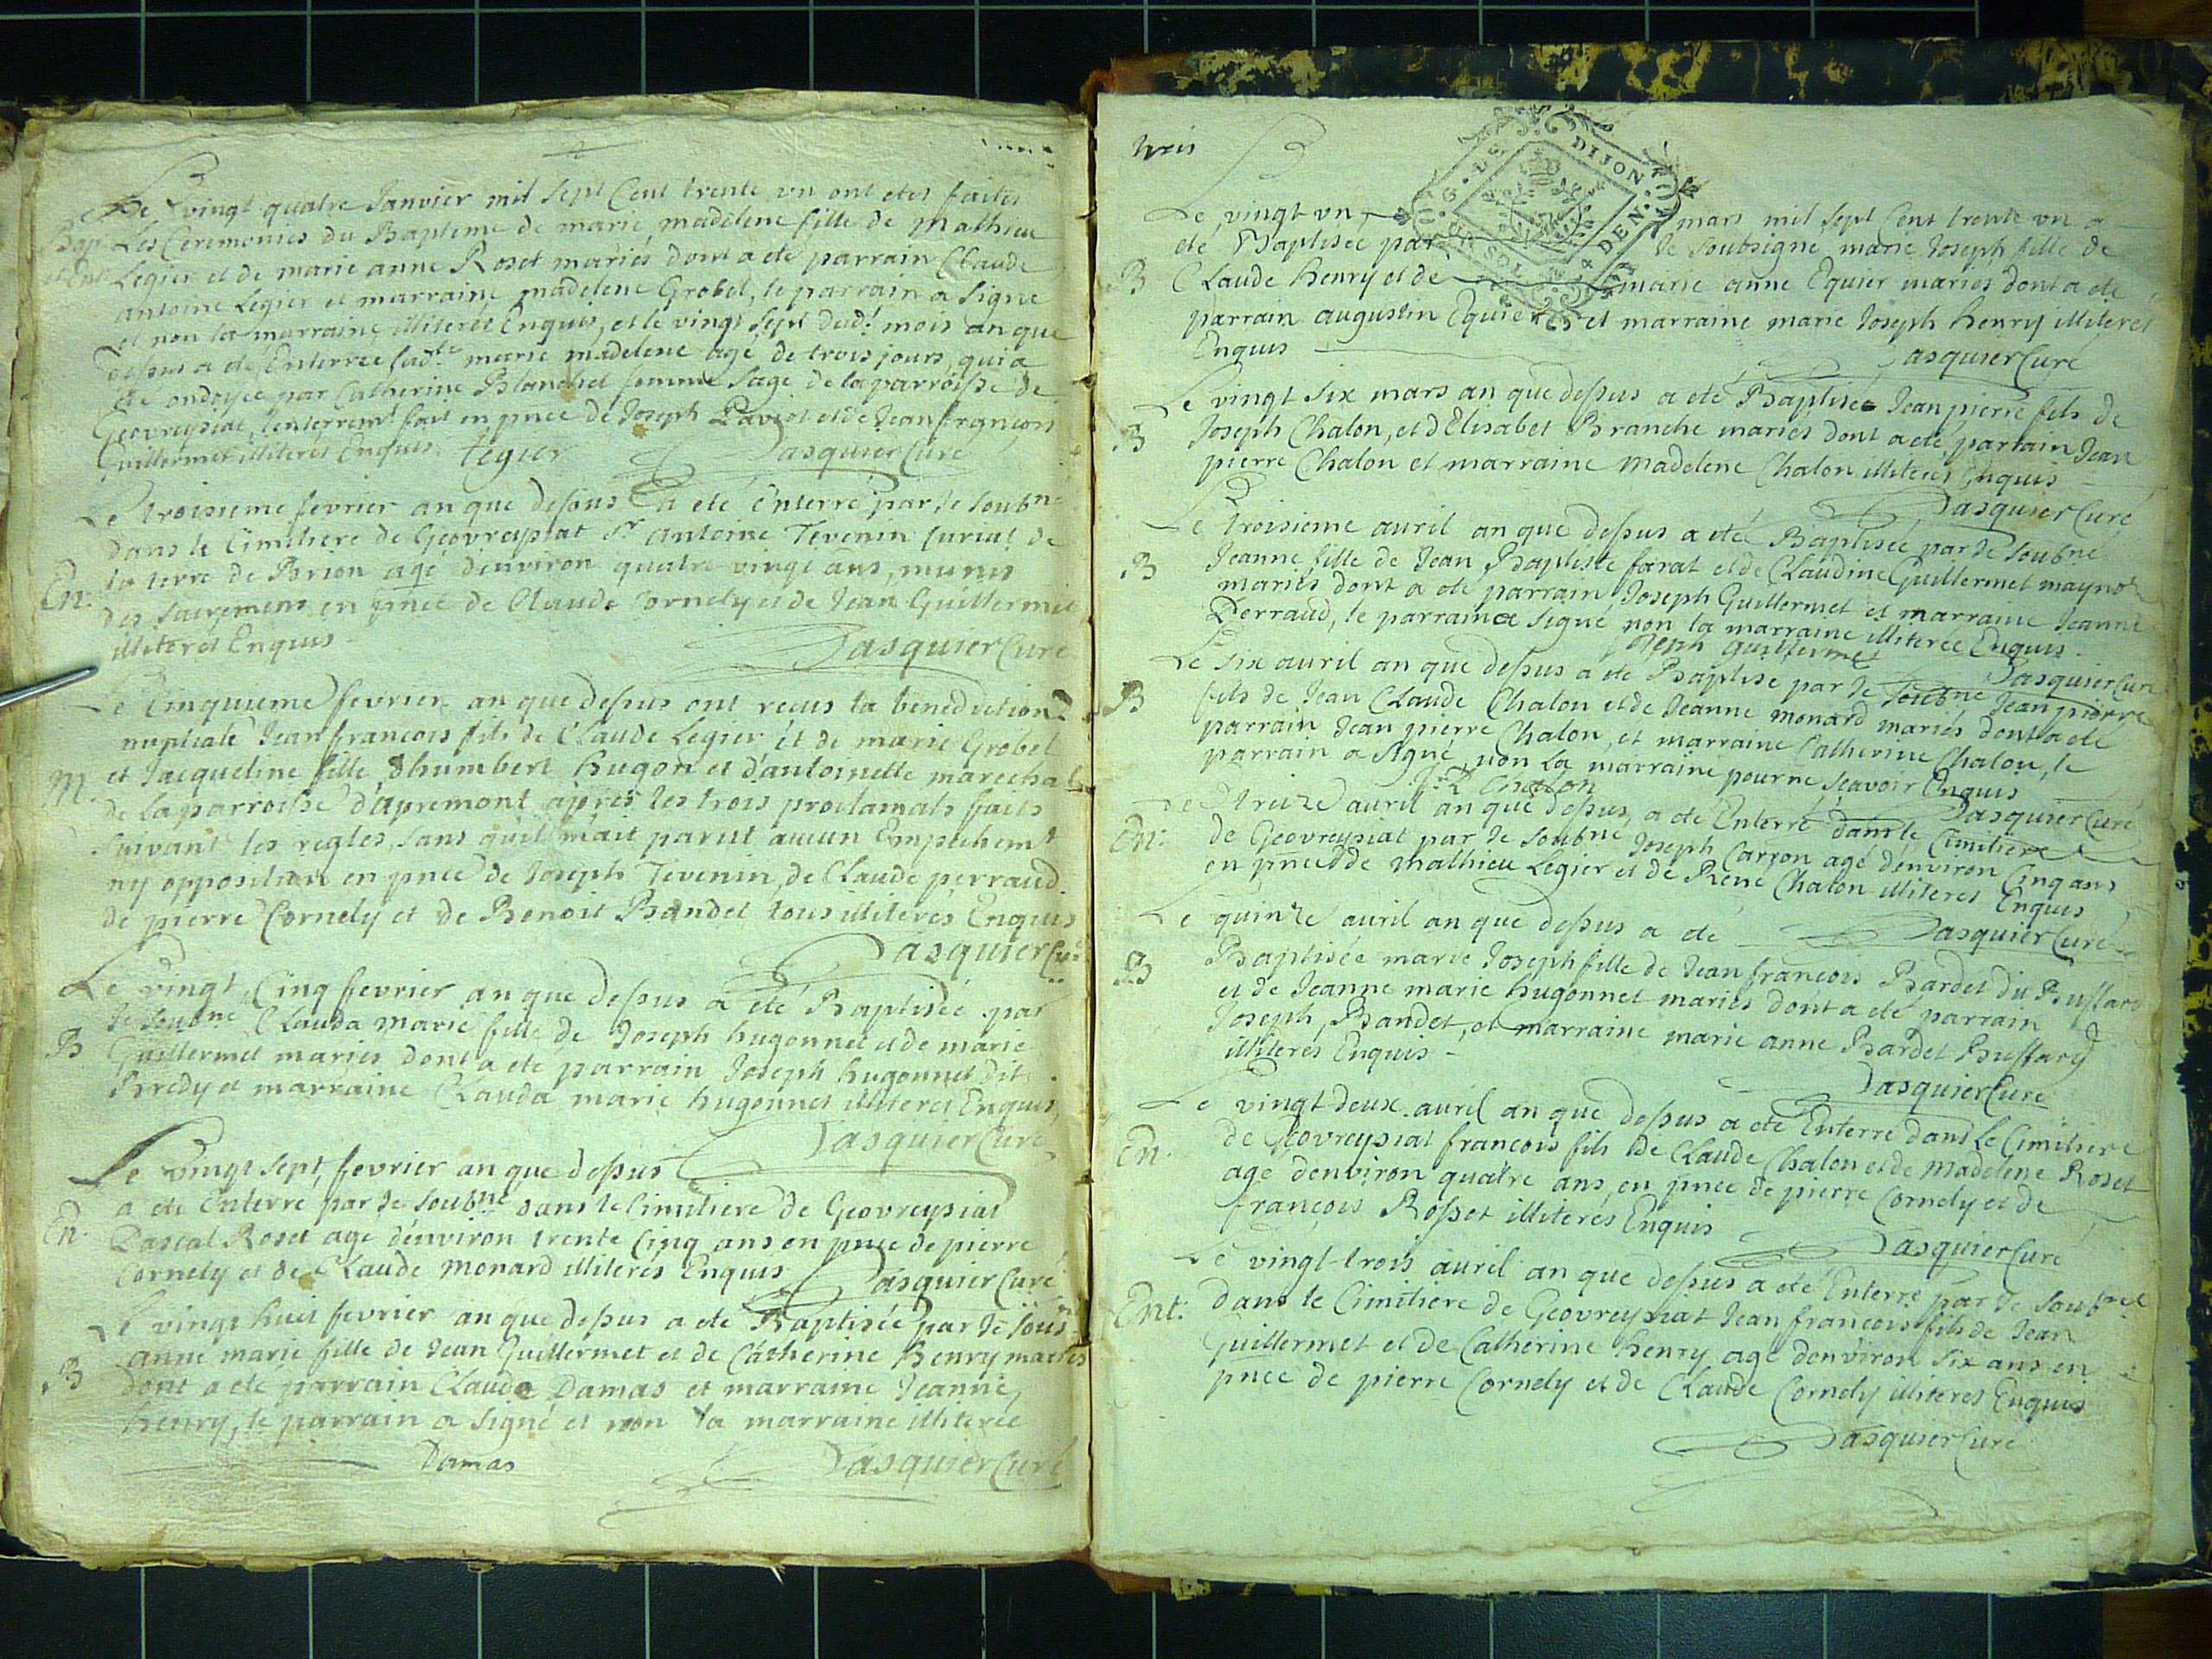 Le vingt quatre Janvier mil sept Cent trente un ont etes faites
Bap Les Ceremonies du Bapteme de marie madelene fille de Mathieu
et Ent Legier et de marie anne Roset mariés dont a eté parrain Claude
antoine Legier et marraine madelene Grobel, le parrain a signé
et non la marraine illiterés Enquis, et le vingt sept dud.t mois an que
dessus a eté Enterrée lad.te marie madelene agé de trois jours, qui a
eté ondoyée par Catherine Blanchet femme sage de la parroisse de
Geovreysiat, l'enterrem.t fait en pnce de Joseph Paviot et de Jean francois
Guillermet illiterés Enquis. Legier Pasquier Curé
Le troisieme fevrier an que dessus a eté Enterré par Je soub.né
dans le Cimitiere de Geovreysiat S.r antoine Tevenin Curial de
En: la terre de Brion agé denviron quatre vingt ans, munis
des sacremens en pnce de Claude Cornely et de Jean Guillermet
illiterés Enquis
Pasquier Curé
Le Cinquieme fevrier an que dessus ont recus la benediction
nuptiale Jean francois fils de Claude Legier et de marie Grobel
M. et Jacqueline fille dhumbert hugon et d'antoinette marechal
de la parroisse d'apremont apres les trois proclamats faits
suivant les regles, sans quil m'ait parut aucun Empechem.t
ny opposition en pnce de Joseph Tevenin, de Claude perraud
de pierre Cornely et de Benoit Bandet tous illiterés Enquis
Pasquier Curé
Le vingt Cinq fevrier an que dessus a eté Baptisée par
Je soub.né Clauda marie fille de Joseph hugonnet et de marie
B Guillermet mariés dont a eté parrain Joseph hugonnet dit
Bredy et marraine Clauda marie hugonnet illiterés Enquis,
Pasquier Curé
Le vingt sept fevrier an que dessus
a eté Enterré par Je soub.né dans le Cimitiere de Geovreysiat
En. Pascal Roset agé denviron trente Cinq ans en pnce de pierre
Cornely et de Claude monard illiterés Enquis Pasquier Curé
Le vingt huit fevrier an que dessus a eté Baptisée par Je sous.né
anne marie fille de Jean Guillermet et de Catherine henry mariés
B dont a eté parrain Claude Damas et marraine Jeanne
henry, le parrain a signé et non la marraine illiterée
Damas Pasquier Curé
trois
G. DE DIJON
SOLS DEN.
Le vingt un mars mil sept Cent trente un a
eté Baptisée par Je soubsigné marie Joseph fille de
B Claude henry et de marie anne Equier mariés dont a eté
parrain augustin Equier et marraine marie Joseph henry illiterés
Enquis
Pasquier Curé
Le vingt six mars an que dessus a eté Baptisé Jean pierre fils de
B Joseph Chalon, et d'Elisabet Branche mariés dont a eté parrain Jean
pierre Chalon et marraine madelene Chalon illiterés Enquis
Pasquier Curé
Le troisieme avril an que dessus a eté Baptisée par Je soub.né
B Jeanne fille de Jean Baptiste farat et de Claudine Guillermet
mariés dont a eté parrain Joseph Guillermet et marraine Jeanne
Perraud, le parrain a signé non la marraine illiterée Enquis.
Joseph Guillermet Pasquier Curé
Le six avril an que dessus a eté Baptisé par Je soub.né Jean pierre
B fils de Jean Claude Chalon et de Jeanne monard mariés dont a eté
parrain Jean pierre Chalon, et marraine Catherine Chalon, le
parrain a signé, non la marraine pour ne scavoir Enquis
Chalon Pasquier Curé
Le treize avril an que dessus, a eté Enterré dans le Cimitiere
En: de Geovreysiat par Je soub.né Joseph Carron agé denviron Cinq ans
en pnce de mathieu Legier et de René Chalon illiterés Enquis
Pasquier Curé
Le quinze avril an que dessus a eté
B Baptisée marie Joseph fille de Jean francois Bardet du Bussard
et de Jeanne marie hugonnet mariés dont a eté parrain
Joseph Bandet, et marraine marie anne Bardet Bussard
illiterés Enquis
Pasquier Curé
Le vingt deux avril an que dessus a eté Enterré dans Le Cimitiere
En. de Geovreysiat francois fils de Claude Chalon et de Madelene Roset
agé denviron quatre ans, en pnce de pierre Cornely et de
françois Rosset illiterés Enquis
Pasquier Curé
Le vingt-trois avril an que dessus a eté Enterré par Je soub.né
Ent: dans le Cimitiere de Geovreysiat Jean francois fils de Jean
Guillermet et de Catherine henry agé denviron six ans en
pnce de pierre Cornely et de Claude Cornely illiterés Enquis
Pasquier Curé